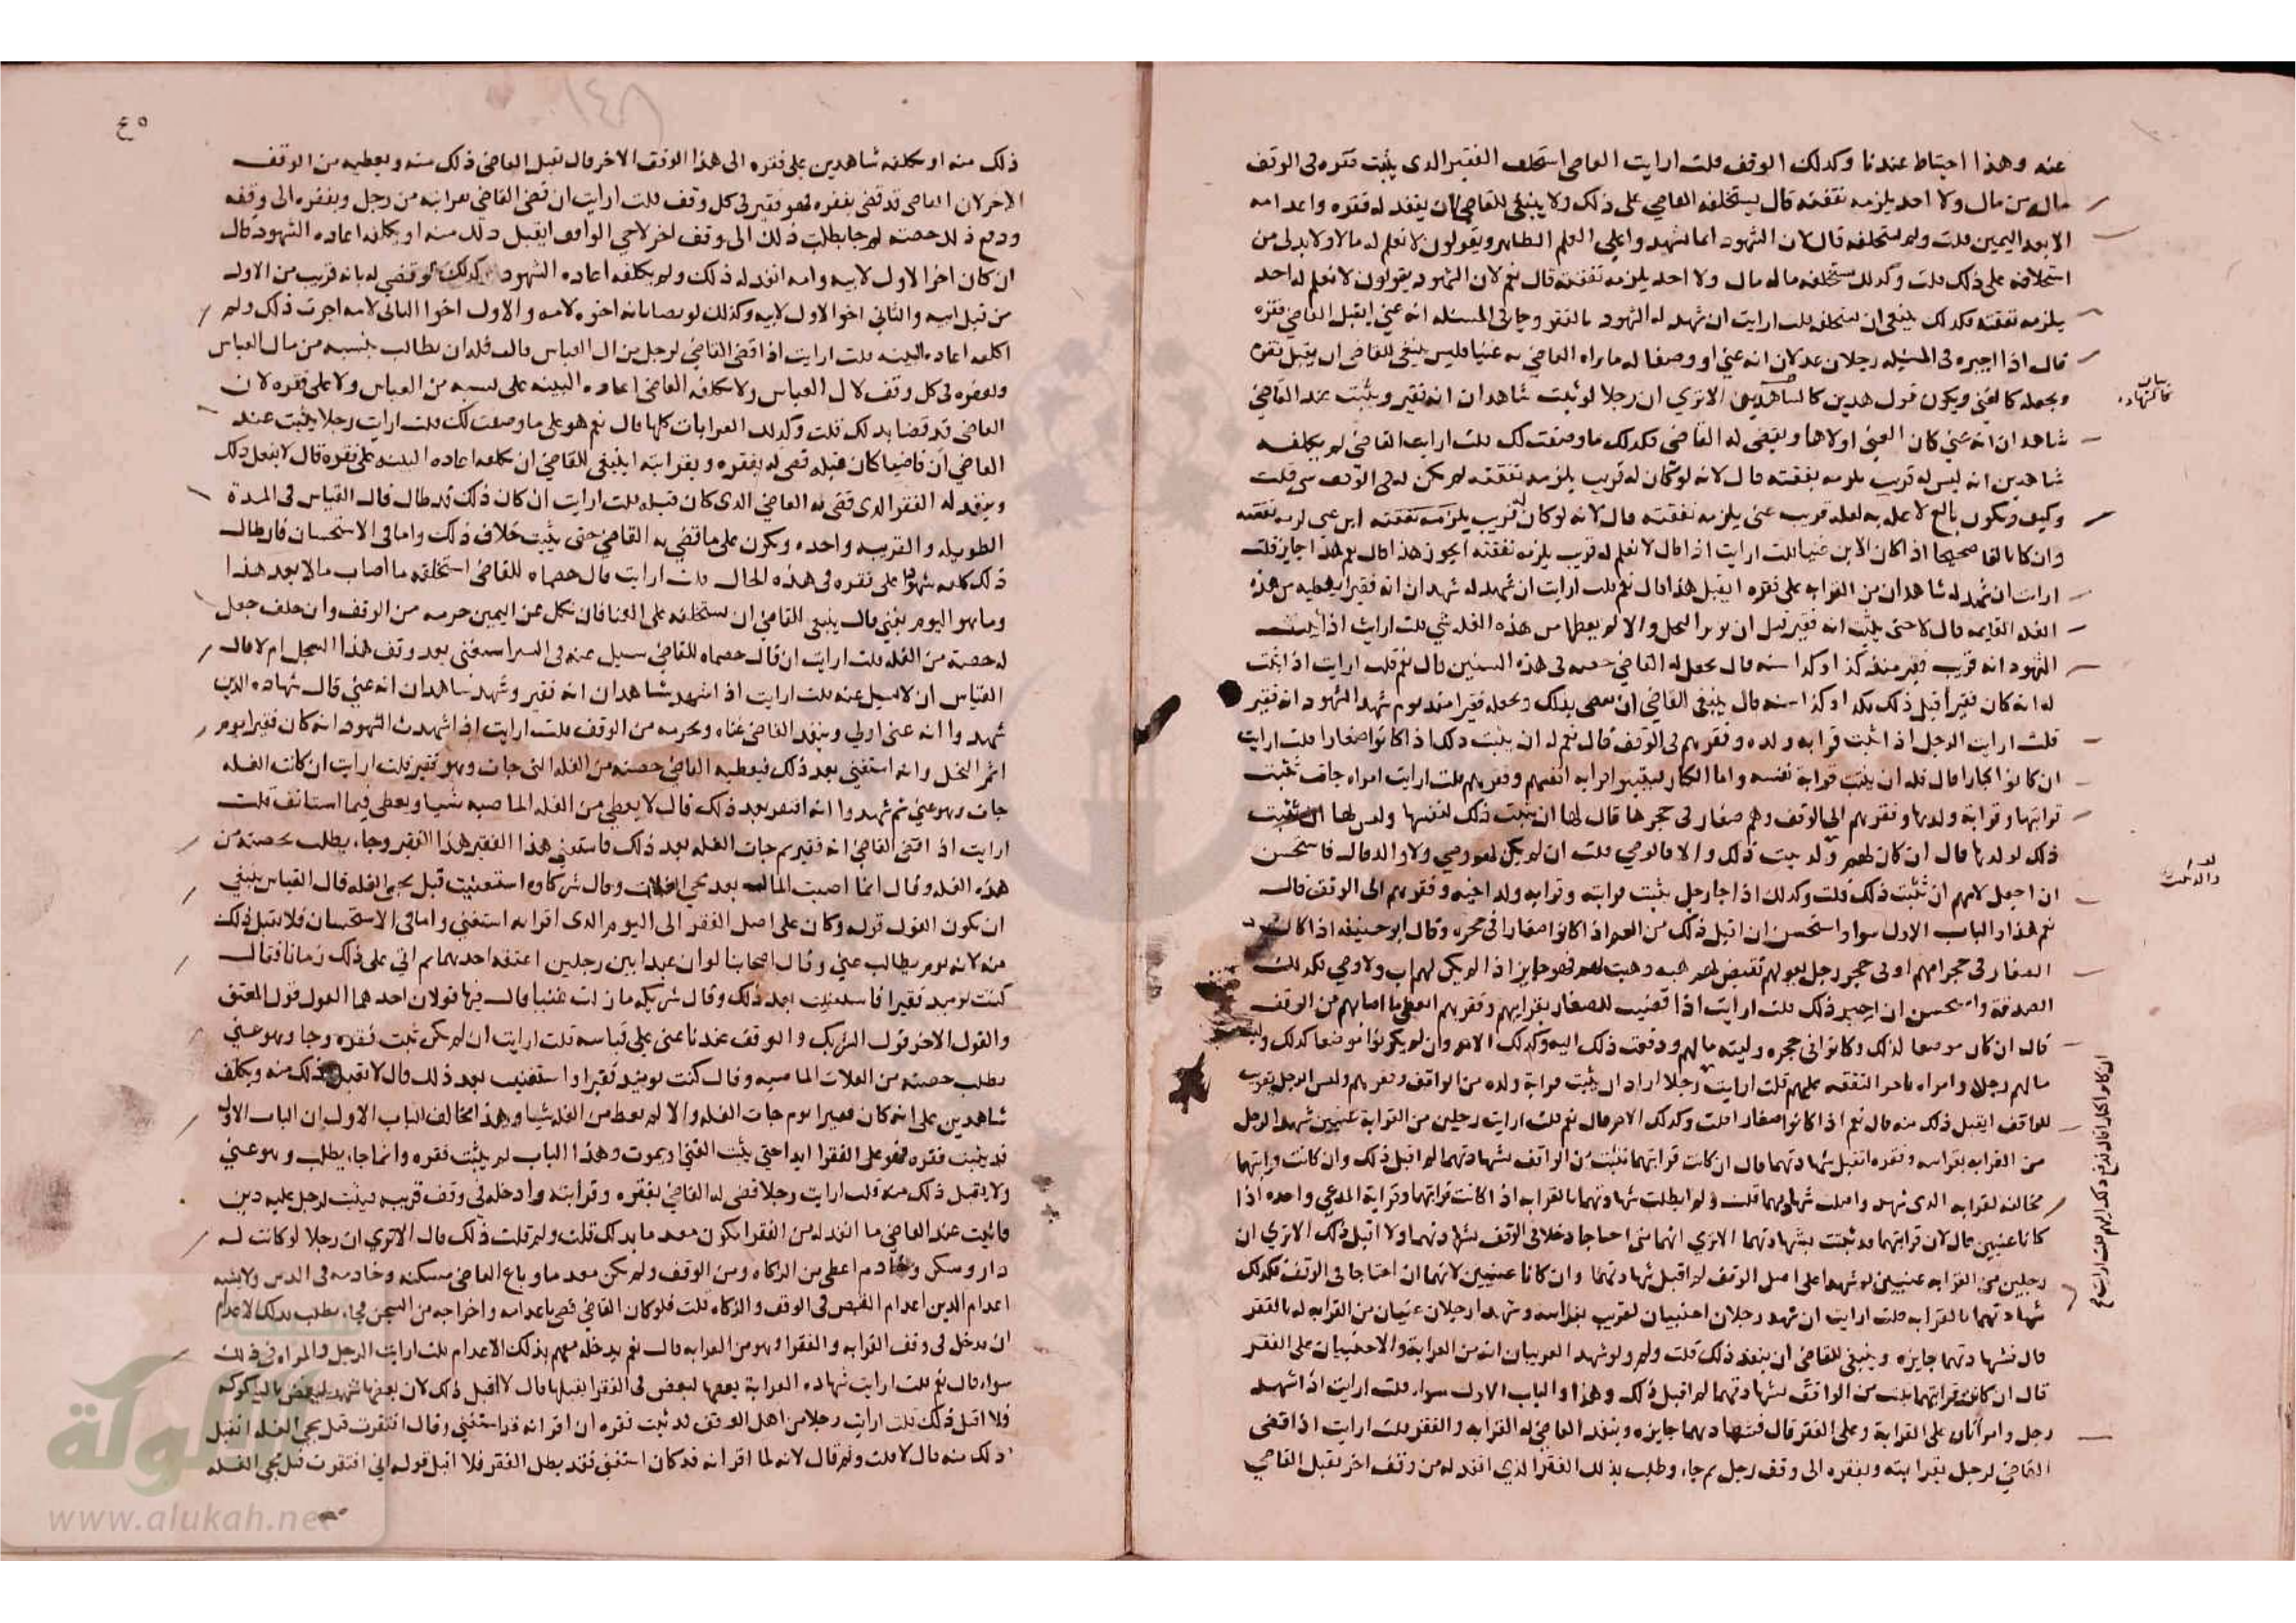 عنه وهذا احتياط عندنا وكذلك الوقف قلت ارايت القاضي استحلف الفقير الذي يثبت فقره في الوقف
ماله من مال ولا احد يلزمه نفقته قال يستحلفه القاضي على ذلك ولا ينبغي للقاضي ان ينفذ له فقره واعدامه
الا بعد اليمين قلت ولم استحلفه قال لان الشهود انما تشهد واعلي العلم الظاهر ويقولون لا نعلم له مالا ولا بد لي من
استحلافه على ذلك قلت وكذلك يستحلفه ماله مال ولا احد يلزمه نفقته قال نعم لان الشهود يقولون لا نعلم له احد
يلزمه نفقته فكذلك ينبغي ان يستحلفه قلت ارايت ان شهد له الشهود بالفقر وجا في المسئله انه غني ايقبل القاضي فقره
قال اذا اخبره في المسئله رجلان عدلان انه غني او وصفا له ما يراه القاضي به غنيا فليس ينبغي للقاضي ان يقبل فقره
ويجعله كالغني ويكون قول هذين كالشاهدين الا تري ان رجلا لو ثبت شاهدان انه فقير ويثبت عند القاضي
شاهدان انه غني كان الغني اولاها ويقضي له القاضي فكذلك ما وصفت لك قلت ارايت القاضي لم يكلفه
شاهدين انه ليس له قريب يلزمه نفقته قال لانه لو كان له قريب يلزمه نفقته لم يكن له في الوقف شي قلت
وكيف ويكون بالغ لا عله به لعله قريب غني يلزمه نفقته قال لانه لو كان له قريب يلزمه نفقته ابن غني لزمه نفقته
وان كان بالغا صحيحا اذا كان الابن غنيا قلت ارايت اذا قال لا نعلم له قريب يلزمه نفقته ايجوز هذا قال نعم هذا جايز قلت
ارايت ان شهد له شاهدان من القرابه على فقره ايقبل هذا قال نعم قلت ارايت ان شهد له شهدان انه فقير ايعطيه من هذه
الغله القايمه قال لا حتى يثبت انه فقير قبل ان يوبر النخل والا لم يعطها من هذه الغله شي قلت ارايت اذا اثبت
الشهود انه قريب فقير منذ كذا وكذا سنه قال يجعل له القاضي حصته في هذه السنين قال نعم قلت ارايت اذا اثبت
له انه كان فقيرا قبل ذلك بكذا وكذا سنه قال ينبغي القاضي ان يقضي بذلك ويجعله فقيرا منذ يوم شهد الشهود انه فقير
قلت ارايت الرجل اذا اثبت قرابه ولده وفقرهم في الوقف قال نعم له ان يثبت ذلك اذا كانوا صغارا قلت ارايت
ان كانوا كبارا قال فله ان يثبت قرابة نفسه واما الكبار ليثبتوا قرابه انفسهم وفقرهم قلت ارايت امراه جات تثبت
قرابتها وقرابة ولدها وفقرهم الى الوقف وهم صغار في حجرها قال لها ان يثبت ذلك لنفسها وليس لها ان تثبت
ذلك لولدها قال ان كان لهم ولد يثبت ذلك والا فالوصي قلت ان لم يكن لهم وصي ولا والد قال فاستحسن
ان اجعل لامهم ان تثبت ذلك قلت وكذلك اذا جا رجل يثبت قرابته وقرابه ولد اخيه وفقرهم الى الوقف قال
نعم هذا والباب الاول سوا واستحسن ان اقبل ذلك من العم اذا كانوا صغارا في حجره وقال ابو حنيفه اذا كان
الصغار في حجر امهم او في حجر رجل يعولهم تقبض لهم هبه وهبت لهم فهو جايز اذا لم يكن لهم اب ولا وصي فكذلك
الصدقة واستحسن ان اجيز ذلك قلت ارايت اذا قضيت للصغار بقرابتهم وفقرهم العطي ما اصابهم من الوقف
قال ان كان موضعا لذلك وكانوا في حجره وليته مالهم ودفعت ذلك اليه وكذلك الام وان لم يكونوا موضعا لذلك
مالهم رجلا وامراه بامر النفقه عليهم قلت ارايت رجلا اراد ان يثبت قرابة ولده من الواقف وفقرهم وليس الرجل بقريب
للواقف ايقبل ذلك منه قال نعم اذا كانوا صغارا قلت وكذلك الام قال نعم قلت ارايت رجلين من القرابة غنيين شهدا لرجل
من القرابه بقرابته وفقره اتقبل شهادتهما قال ان كانت قرابتهما تثبت من الواقف بشهادتهما لم اقبل ذلك وان كانت قرابتهما
مخالفه لقرابه الذي شهد واصلت شهادتهما قلت ولم ابطلت شهادتهما بالقرابه اذا كانت قرابتهما وقرابة المدعي واحده اذا
كانا غنيين قال لان قرابتهما قد ثبتت بشهادتهما الا تري انهما متى احتاجا دخلا في الوقف بشهادتهما ولا اقبل ذلك الا تري ان
رجلين من القرابه غنيين لو شهدا على اصل الوقف لم اقبل شهادتهما وان كانا غنيين لانهما ان احتاجا في الوقف فكذلك
شهادتهما بالقرابه قلت ارايت ان شهد رجلان اجنبيان لقريب بقرابته وشهد ارجلان غنيان من القرابه له بالفقر
قال فشهادتهما جايزه وينبغي للقاضي ان ينفذ ذلك قلت ولم ولو شهد القريبان انه من القرابة والاجنبيان على الفقر
قال ان كانت قرابتهما يثبت من الواقف بشهادتهما لم اقبل ذلك وهذا والباب الاول سوا قلت ارايت اذا شهد
رجل وامراتان على القرابة وعلى الفقر قال فشهادتهما جايزه وينفذ القاضي له القرابه والفقر قلت ارايت اذا قضي
القاضي لرجل بقرابته وبفقره الى وقف رجل ثم جا وطلب بذلك الفقر الذي انفذ له من وقف اخر يقبل القاضي
٤٥
ذلك منه او يكلفه شاهدين على فقره الى هذا الوقف الاخر قال يقبل القاضي ذلك منه ويعطيه من الوقف
الاخر لان القاضي قد قضي بفقره فهو فقير في كل وقف قلت ارايت ان قضى القاضي بقرابته من رجل وبفقره الى وقفه
ودفع ذلك حصته ثم جا يطلب ذلك الى وقف اخر لاخي الواقف ايقبل ذلك منه او يكلفه اعاده الشهود قال
ان كان اخر الاول لابيه وامه انفذ له ذلك ولم يكلفه اعاده الشهود كذلك لو قضي له بانه قريب من الاول
من قبل ابيه والثاني اخو الاول لابيه وكذلك لو قضا بانه اخوه لامه والاول اخوا الثاني لامه اجزت ذلك ولم
اكلفه اعاده البينه قلت ارايت اذا قضى القاضي لرجل من ال العباس قال فله ان يطالب بنسبه من مال العباس
وبفقره في كل وقف لال العباس ولا يكلفه القاضي اعاده البينه على نسبه من العباس ولا على فقره لان
القاضي قد قضا بذلك قلت وكذلك القرابات كلها قال نعم هو على ما وصفت لك قلت ارايت رجلا يثبت عند
القاضي ان قاضيا كان قبله قضي له بفقره وبقرابته اينبغي للقاضي ان يكلفه اعاده البينه على فقره قال لا يفعل ذلك
وينفذ له الفقر الذي قضي به القاضي الذي كان قبله قلت ارايت ان كان ذلك قد طال قال القياس في المدة
الطويله والقريبه واحده ويكون على ما قضي به القاضي حتى يثبت خلاف ذلك واما في الاستحسان فان طال
ذلك كلفه شهودا على فقره في هذه الحال قلت ارايت قال خصماه للقاضي استحلفه ما اصاب مالا بعد هذا
وما هو اليوم بغني قال ينبغي للقاضي ان يستحلفه على الغنا فان نكل عن اليمين حرمه من الوقف وان حلف جعل
له حصته من الغله قلت ارايت ان قال خصماه للقاضي سيل عنه في السر استغنى بعد وقف هذا السجل ام لا قال
القياس ان لا يسيل عنه قلت ارايت اذا شهد شاهدان انه فقير وشهد شاهدان انه غني قال شهاده الذين
شهدوا انه غني اولي وينفذ القاضي غناه ويحرمه من الوقف قلت ارايت اذا شهدت الشهود انه كان فقيرا يوم
اثمر النخل وانه استغني بعد ذلك فيعطيه القاضي حصته من الغله التي جات وهو فقير قلت ارايت ان كانت الغله
جات وهو غني ثم شهدوا انه افتقر بعد ذلك قال لا يعطي من الغله الماضيه شيا ويعطي فيما استانف قلت
ارايت اذا اقضى القاضي انه فقير ثم جات الغله بعد ذلك فاستغنى هذا الفقير هذا الفقير وجا يطلب بحصته من
هذه الغله وقال انما اصبت المال بعد مجي الغلات وقال شركاوه استغنيت قبل مجي الغله قال القياس ينبغي
ان يكون القول قوله وكان على اصل الفقر الى اليوم الذي اقرانه استغني واما في الاستحسان فلا يقبل ذلك
منه لانه يوم يطالب غني وقال اصحابنا لو ان عبدا بين رجلين اعتقه احدهما ثم اتي على ذلك زمانا فقال
كنت يوميد فقيرا فاستغنيت بعد ذلك وقال شريكه ما زلت غنيا قال فيها قولان احدهما القول قول المعتق
والقول الاخر قول الشريك والوقف عندنا غني على قياسه قلت ارايت ان لم يكن ثبت فقره وجا وهو غني
يطلب حصته من الغلات الماضيه وقال كنت يوميد فقيرا واستغنيت بعد ذلك قال لا اقبل ذلك منه ويكلف
شاهدين على انه كان فقيرا يوم جات الغله والا لم يعط من الغله شيا وهذا يخالف الباب الاول ان الباب الاول
قد يثبت فقره فهو على الفقر ابدا حتى يثبت الغني او يموت وهذا الباب لم يثبت فقره وانما جا يطلب وهو غني
ولا يقبل ذلك منه قلت ارايت رجلا قضي له القاضي بفقره وقرابته وادخله في وقف قريبه فيثبت لرجل عليه دين
فاثبت عند القاضي ما انفذ له من الفقر ايكون معدما بذلك قلت ولم قلت ذلك قال الا تري ان رجلا لو كانت له
دار وسكن وخادم اعطي من الزكاه ومن الوقف ولم يكن معدما وباع القاضي مسكنه وخادمه في الدين ولا يشبه
اعدام الدين اعدام القبض في الوقف والزكاه قلت فلو كان القاضي قضي باعدامه واخراجه من السجن فجا يطلب بذلك الاعدام
ان يدخل في وقف القرابه والفقرا وهو من القرابه قال نعم يدخله معهم بذلك الاعدام قلت ارايت الرجل والمراه في ذلك
سوا قال نعم قلت ارايت شهاده القرابة بعضها لبعض في الفقر ايقبلها قال لا اقبل ذلك لان بعضها شهد لبعض
فلا اقبل ذلك قلت ارايت رجلا من اهل الوقف قد ثبت فقره ان اقر انه قد استغني وقال افتقرت قبل مجي الغله اتقبل
ذلك منه قال لا قلت ولم قال لانه لما اقر انه قد كان استغنى فقد بطل الفقر فلا اقبل قوله اني افتقرت قبل مجي الغله
الألوكة
www.alukah.net